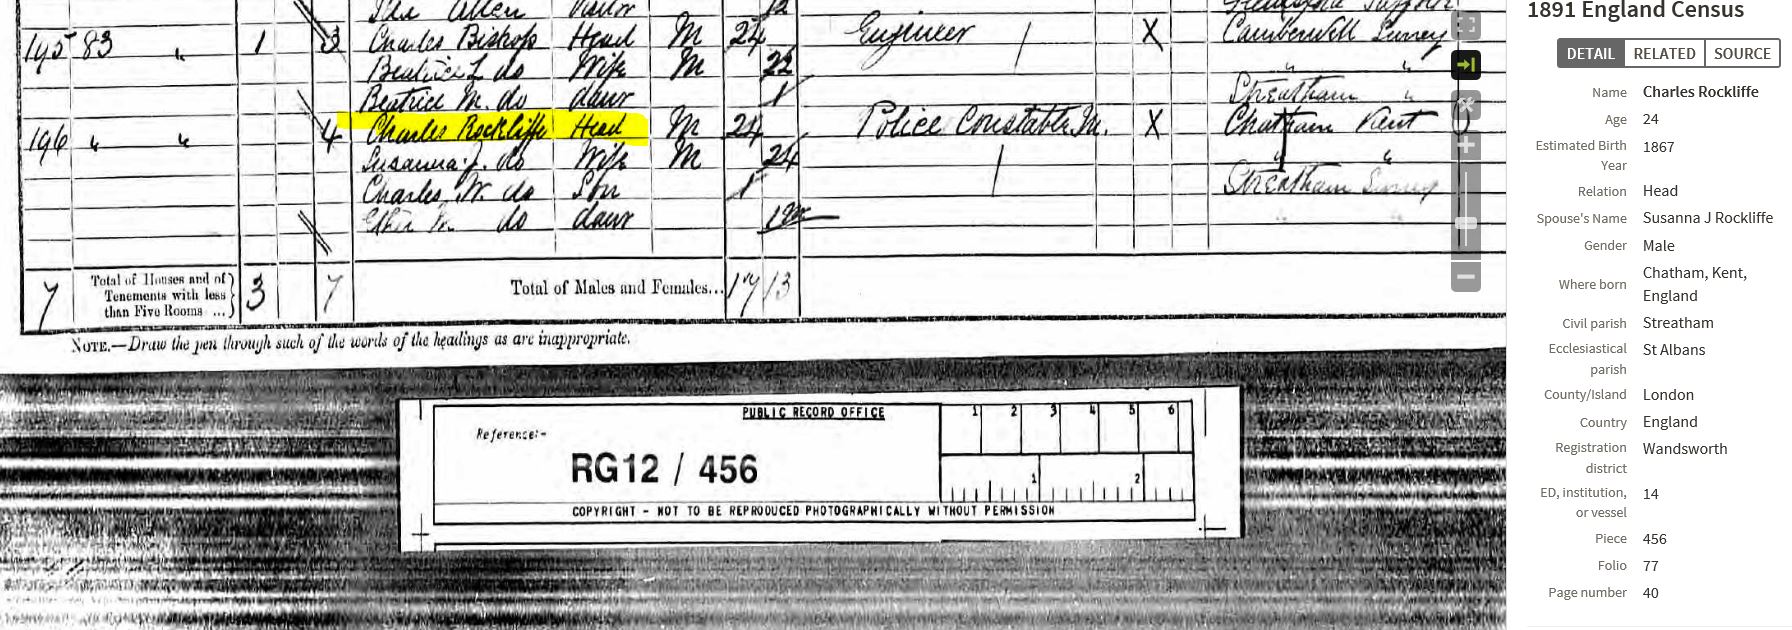 Allen Visitor 12
195 83 " 1 3 Charles Bishop Head M 24 Engineer X Camberwell Surrey
Beatrice L do Wife M 22 " "
Beatrice M. do daur 1 Streatham "
196 " " 4 Charles Rockliffe Head M 24 Police Constable M. X Chatham Kent
Susanna J. do Wife M 24 " "
Charles W. do Son 1 Streatham Surrey
do daur
7 Total of Houses and of Tenements with less than Five Rooms ... 3 7 Total of Males and Females... 17 13
NOTE.—Draw the pen through such of the words of the headings as are inappropriate.
PUBLIC RECORD OFFICE 1 2 3 4 5 6
Reference:-
RG12 / 456 1 2
COPYRIGHT - NOT TO BE REPRODUCED PHOTOGRAPHICALLY WITHOUT PERMISSION
1891 England Census
DETAIL RELATED SOURCE
Name Charles Rockliffe
Age 24
Estimated Birth Year 1867
Relation Head
Spouse's Name Susanna J Rockliffe
Gender Male
Where born Chatham, Kent, England
Civil parish Streatham
Ecclesiastical parish St Albans
County/Island London
Country England
Registration district Wandsworth
ED, institution, or vessel 14
Piece 456
Folio 77
Page number 40